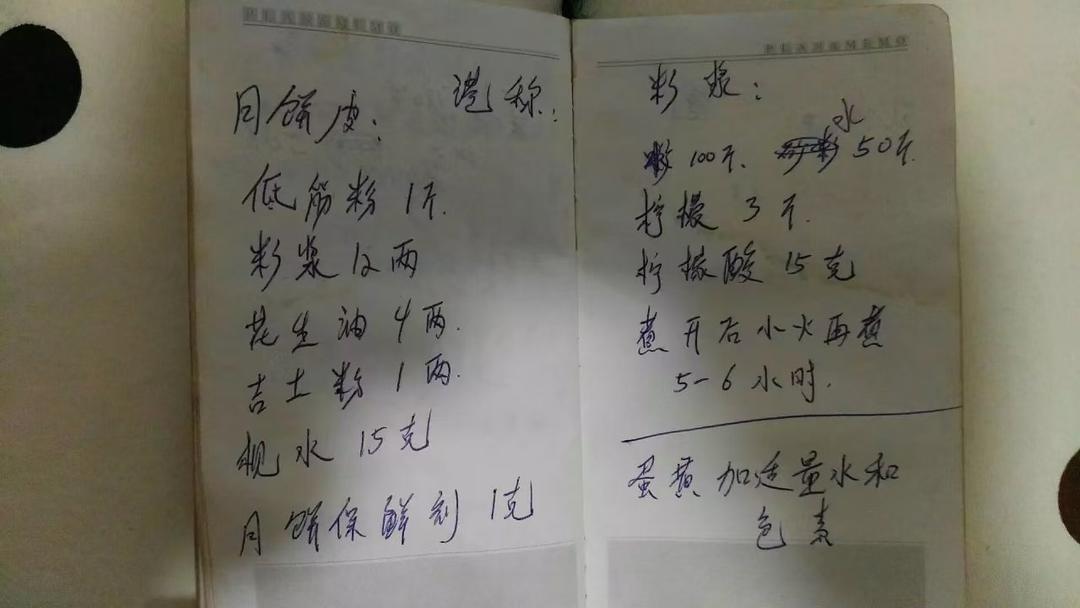 PLAN&MEMO
月饼皮：
低筋粉 1斤.
粉浆 12两
花生油 4两.
吉士粉 1两.
枧水 15克
月饼保鲜剂 1克
PLAN&MEMO
浆：
100斤、水 50斤.
柠檬 3斤.
柠檬酸 15克
煮开后小火再煮
5-6小时.
蛋黄加适量水和
色素